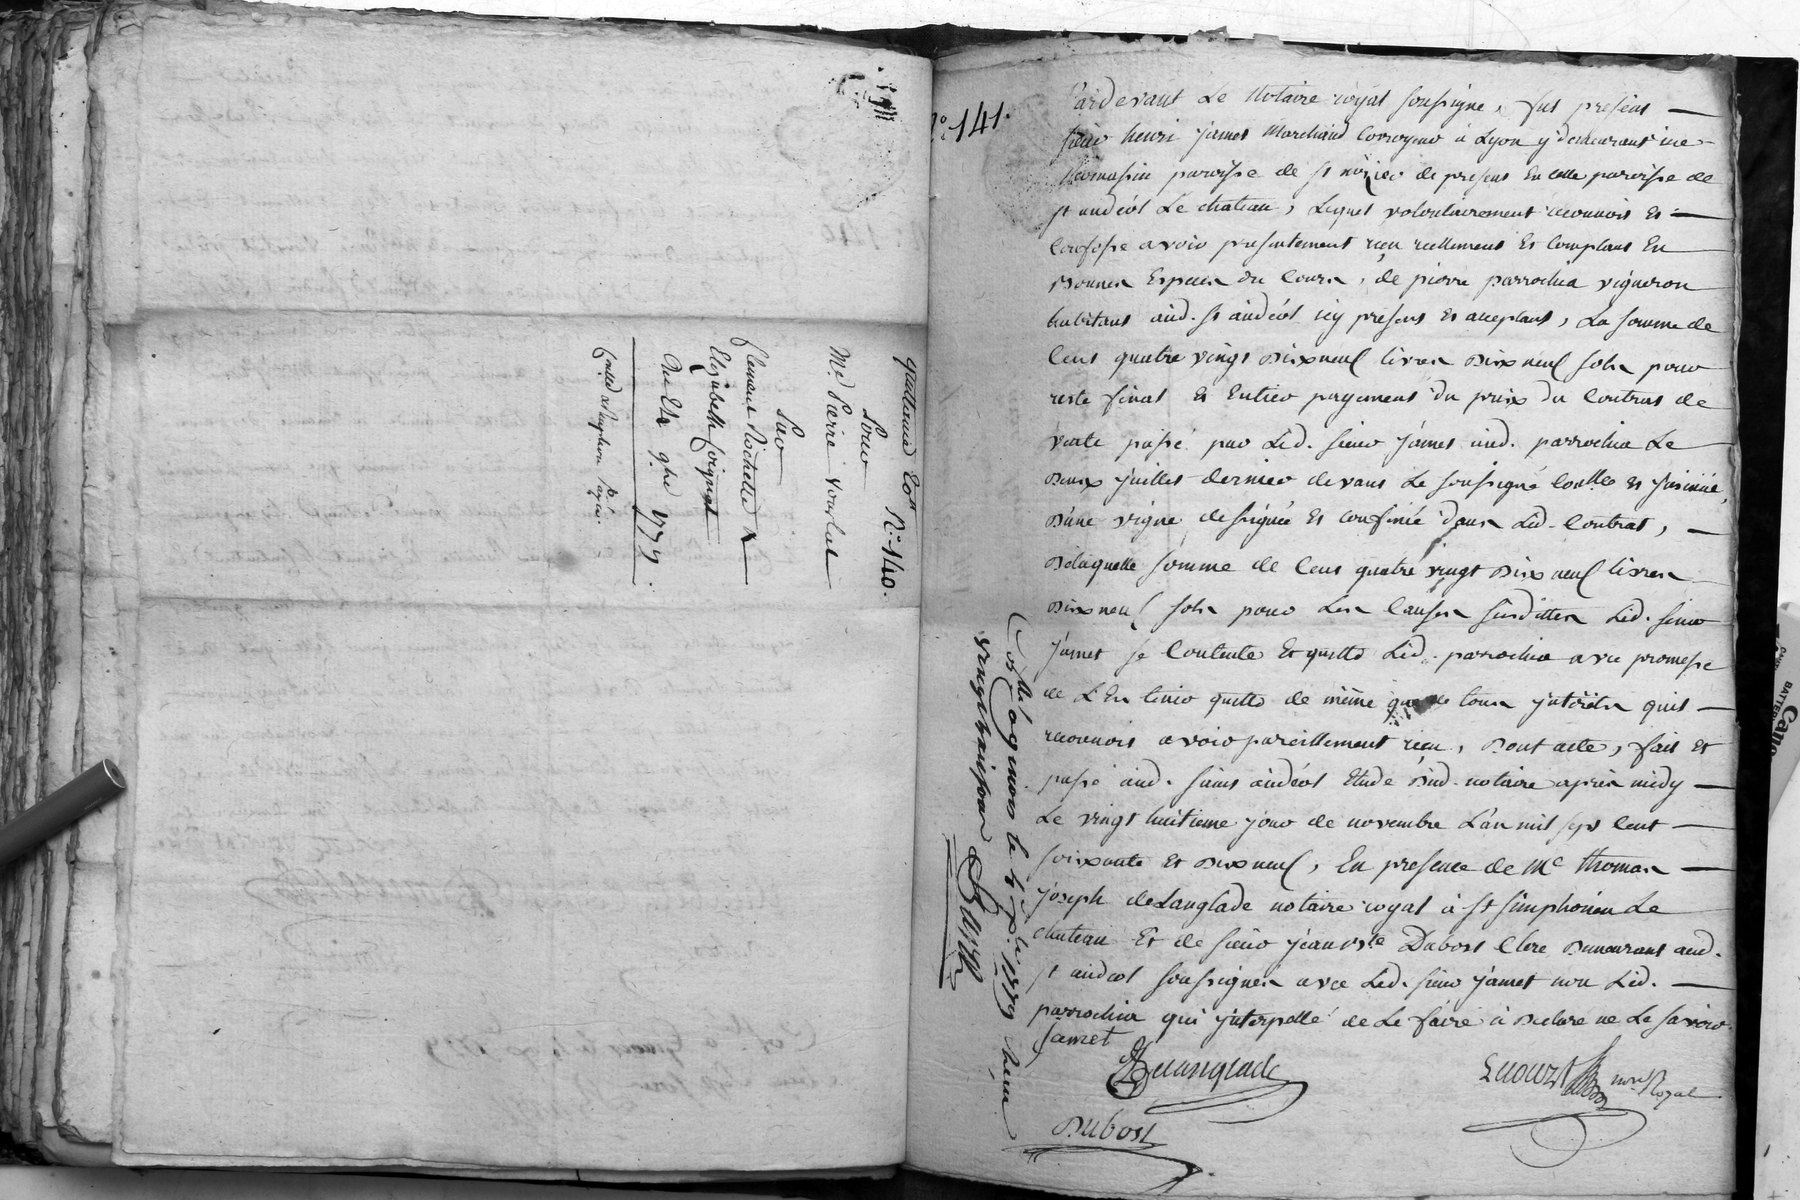 quittance Con N.º 140.
pour
Me. Pierre
par
Clement Rochette &
Elizabeth
Du 21e 9bre 1779.
N.º 141.
Pardevant Le Notaire royal soussigné, fut présent
sieur henri james Marchand Corroyeur a Lyon y demeurant rue
paroisse de st nizier de present En cette paroisse de
st andéol Le chateau, Lequel volontairement reconnois Et
Confesse avoir presentement reçu reellement Et Comptant En
Bonnes Especes du Cours, de pierre parrochia vigneron
habitant aud. st andéol icy present Et acceptant, La somme de
Cent quatre vingt Dixneuf livres Dixneuf sols pour
reste final Et Entier payement du prix du Contrat de
vente passé par Led. sieur james aud. parrochia Le
Deux juillet dernier devant Le soussigné Conllé Et jnsinué,
D'une vigne designée Et confinée dans Led. Contrat,
Delaquelle somme de Cent quatre vingt Dix neuf livres
Dixneuf sols pour Les Causes susdittes Led. sieur
james se Contente Et quitte Led. parrochia avec promesse
de L'En tenir quitte de même que de tous jnterêts quil
reconnois avoir pareillement reçu, Dont acte, fait Et
passé aud. saint andéol Etude Dud. notaire après midy
Le vingt huitieme jour de novembre L'an mil sept Cent
soixante Et Dixneuf, En presence de Me thomas
joseph delanglade notaire royal à st simphorien Le
chateau Et de sieur jean Bte Dubost Clerc Demeurant aud.
st andeol soussignés avec Led. sieur jamet non Led.
parrochia qui jnterpellé de Le faire a Declaré ne Le savoir.
jamet
Delanglade
nore Royal
Dubost
Collé a givors le 4 Xbre 1779 Reçu
vingt huit sous